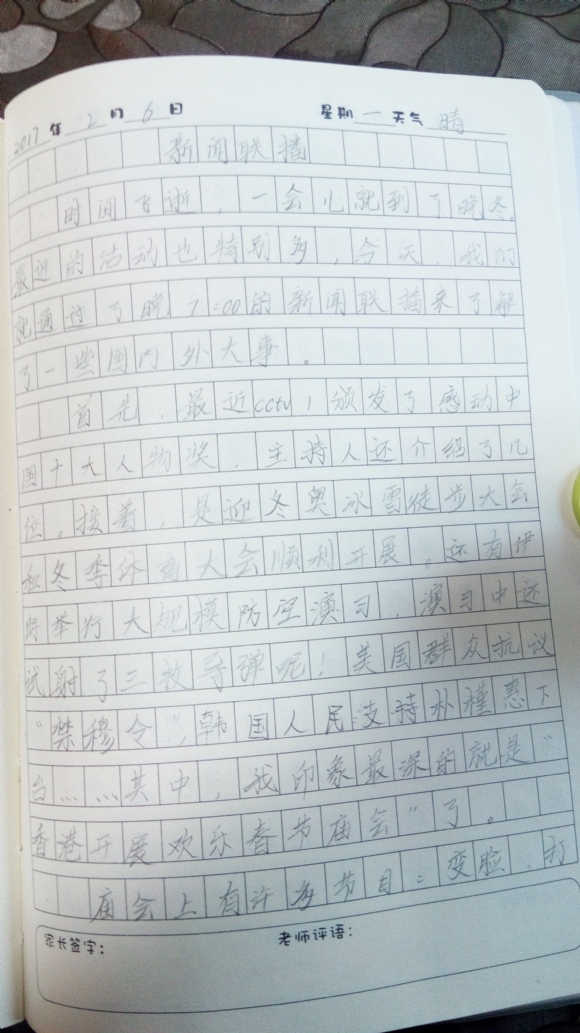 2017年2月6日 星期一 天气晴
新闻联播
时间飞逝，一会儿就到了晚冬。
最近的活动也特别多，今天，我们
就通过了晚7:00的新闻联播来了解
了一些国内外大事。
首先，最近cctv1颁发了感动中
国十大人物奖，主持人还介绍了几
位。接着，是迎冬奥冰雪徒步大会
和冬季体育大会顺利开展。还有伊
朗举行大规模防空演习，演习中还
试射了三枚导弹呢！美国群众抗议
“禁穆令”，韩国人民支持朴槿惠下
台……其中，我印象最深的就是“
香港开展欢乐春节庙会”了。
庙会上有许多节目：变脸、打
家长签字： 老师评语：